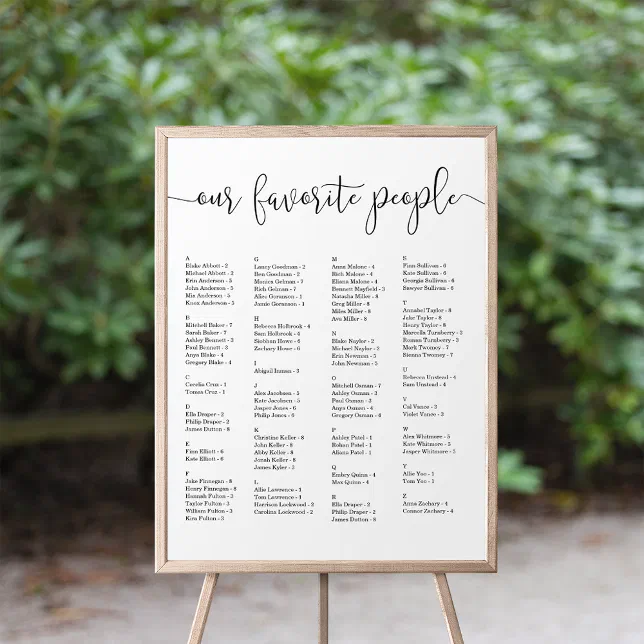 our favorite people
A
Blake Abbott - 2
Michael Abbott - 2
Erin Anderson - 5
John Anderson - 5
Mia Anderson - 5
Knox Anderson - 5
B
Mitchell Baker - 7
Sarah Baker - 7
Ashley Bennett - 2
Paul Bennett - 2
Anya Blake - 4
Gregory Blake - 4
C
Corelia Cruz - 1
Tomas Cruz - 1
D
Ella Draper - 2
Philip Draper - 2
James Dutton - 8
E
Finn Elliott - 6
Kate Elliott - 6
F
Jake Finnegan - 8
Henry Finnegan - 8
Hannah Fulton - 3
Taylor Fulton - 3
William Fulton - 3
Kira Fulton - 3
G
Laney Goodman - 2
Ben Goodman - 2
Monica Gelman - 7
Rich Gelman - 7
Alice Goranson - 1
Jamie Goranson - 1
H
Rebecca Holbrook - 4
Sam Holbrook - 4
Siobhan Howe - 6
Zachary Howe - 6
I
Abigail Inman - 3
J
Alex Jacobsen - 5
Kate Jacobsen - 5
Jasper Jones - 6
Philip Jones - 6
K
Christine Keller - 8
John Keller - 8
Abby Keller - 8
Jonah Keller - 8
James Kyler - 3
L
Allie Lawrence - 1
Tom Lawrence - 1
Harrison Lockwood - 2
Carolina Lockwood - 2
M
Anna Malone - 4
Rich Malone - 4
Eliana Malone - 4
Bennett Mayfield - 3
Natasha Miller - 8
Greg Miller - 8
Miles Miller - 8
Ava Miller - 8
N
Blake Naylor - 2
Michael Naylor - 2
Erin Newman - 5
John Newman - 5
O
Mitchell Osman - 7
Ashley Osman - 2
Paul Osman - 2
Anya Osman - 4
Gregory Osman - 4
P
Ashley Patel - 1
Rohan Patel - 1
Aliana Patel - 1
Q
Embry Quinn - 4
Max Quinn - 4
R
Ella Draper - 2
Philip Draper - 2
James Dutton - 8
S
Finn Sullivan - 6
Kate Sullivan - 6
Georgia Sullivan - 6
Sawyer Sullivan - 6
T
Annabel Taylor - 8
Jake Taylor - 8
Henry Taylor - 8
Marcella Turnsberry - 3
Roman Turnsberry - 3
Mark Twomey - 7
Sienna Twomey - 7
U
Rebecca Unstead - 4
Sam Unstead - 4
V
Cal Vance - 3
Violet Vance - 3
W
Alex Whitmore - 5
Kate Whitmore - 5
Jasper Whitmore - 6
Y
Allie Yoo - 1
Tom Yoo - 1
Z
Anna Zachary - 4
Connor Zachary - 4